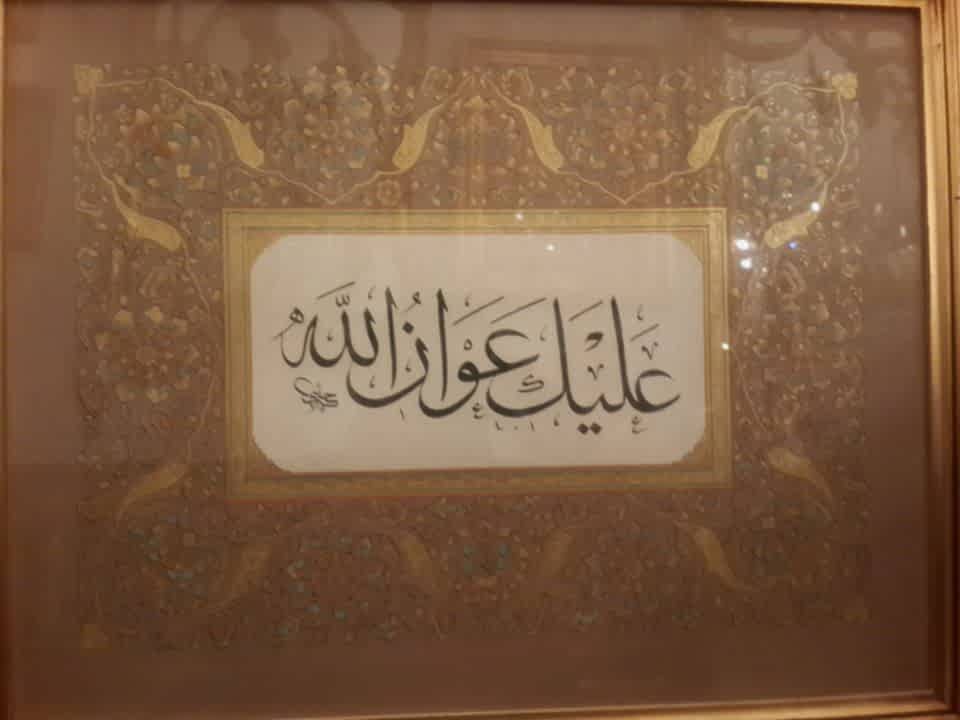 عَلَيْكَ عَوْنُ اللّٰه